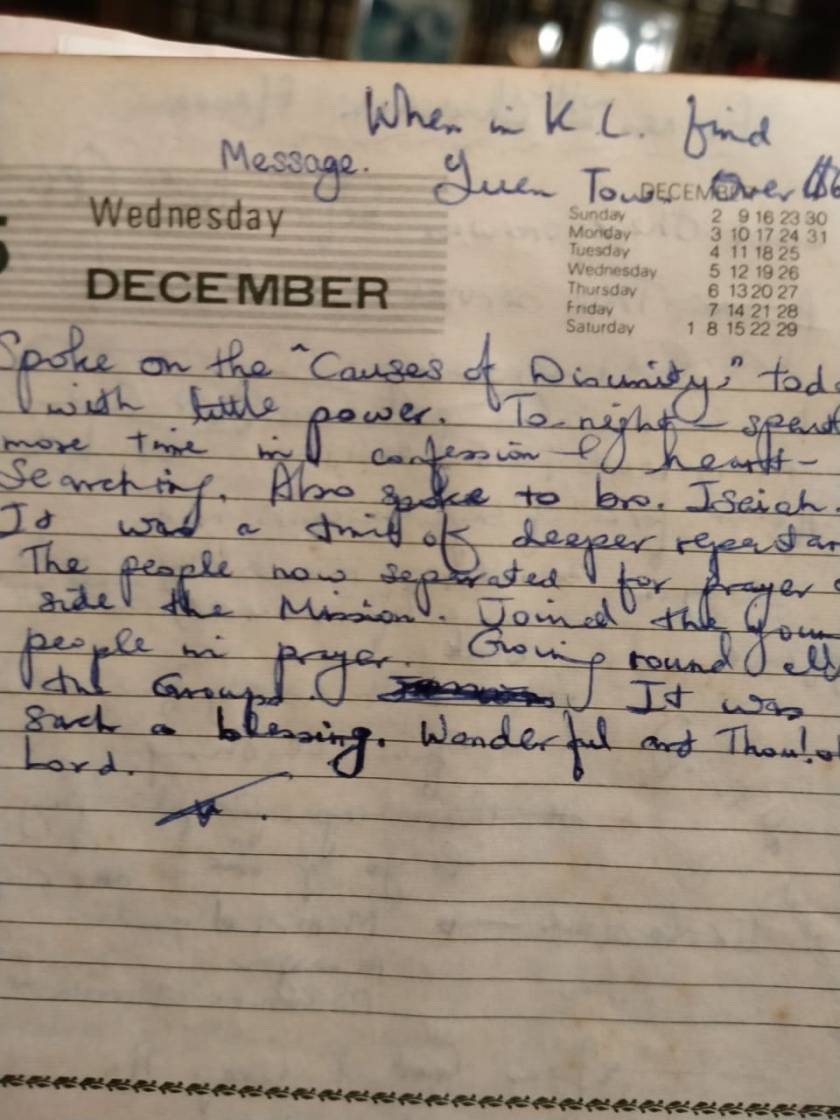 When in K L. find
Message. Yuen Tow. Over
Wednesday
DECEMBER
DECEMBER
Sunday 2 9 16 23 30
Monday 3 10 17 24 31
Tuesday 4 11 18 25
Wednesday 5 12 19 26
Thursday 6 13 20 27
Friday 7 14 21 28
Saturday 1 8 15 22 29
Spoke on the "Causes of Disunity," tod
with little power. To-night - spent
more time in confession & heart-
Searching. Also spoke to bro. Iseiah.
It was a time of deeper repentan
The people now separated for prayer
side the Mission. Joined the youn
people in prayer. Going round all
the Groups. It was
such a blessing. Wonderful art Thou! o
Lord.